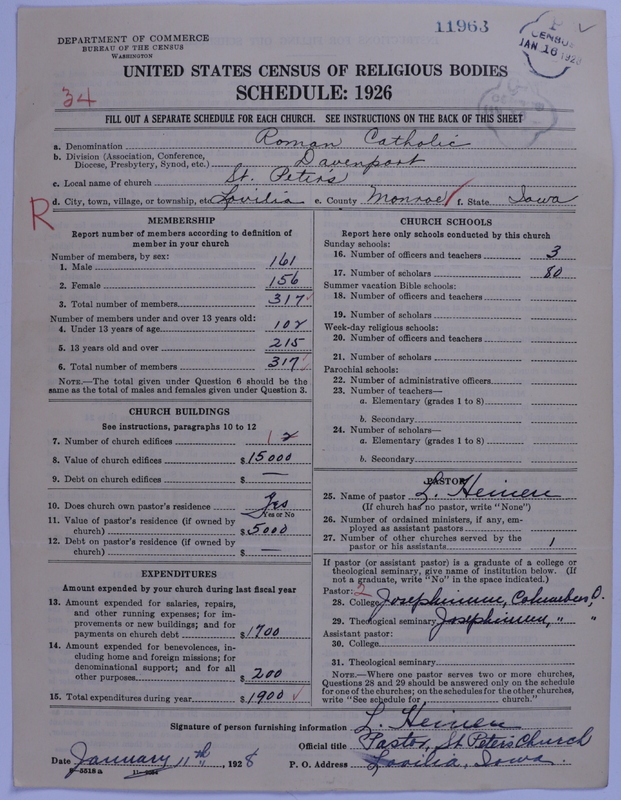 11963
DEPARTMENT OF COMMERCE
BUREAU OF THE CENSUS
WASHINGTON
CENSUS
JAN 16 1928
UNITED STATES CENSUS OF RELIGIOUS BODIES
34
SCHEDULE: 1926
FILL OUT A SEPARATE SCHEDULE FOR EACH CHURCH. SEE INSTRUCTIONS ON THE BACK OF THIS SHEET
a. Denomination Roman Catholic
b. Division (Association, Conference, Diocese, Presbytery, Synod, etc.) Davenport
c. Local name of church St. Peter's
R d. City, town, village, or township, etc. Lovilia e. County Monroe f. State Iowa
MEMBERSHIP
Report number of members according to definition of
member in your church
Number of members, by sex:
1. Male 161
2. Female 156
3. Total number of members 317
Number of members under and over 13 years old:
4. Under 13 years of age 102
5. 13 years old and over 215
6. Total number of members 317
NOTE.—The total given under Question 6 should be the
same as the total of males and females given under Question 3.
CHURCH BUILDINGS
See instructions, paragraphs 10 to 12
7. Number of church edifices 1 2
8. Value of church edifices $15000
9. Debt on church edifices $ —
10. Does church own pastor's residence Yes
Yes or No
11. Value of pastor's residence (if owned by
church) $5000
12. Debt on pastor's residence (if owned by
church) $ —
EXPENDITURES
Amount expended by your church during last fiscal year
13. Amount expended for salaries, repairs,
and other running expenses; for im-
provements or new buildings; and for
payments on church debt $1700
14. Amount expended for benevolences, in-
cluding home and foreign missions; for
denominational support; and for all
other purposes $200
15. Total expenditures during year $1900
CHURCH SCHOOLS
Report here only schools conducted by this church
Sunday schools:
16. Number of officers and teachers 3
17. Number of scholars 80
Summer vacation Bible schools:
18. Number of officers and teachers
19. Number of scholars
Week-day religious schools:
20. Number of officers and teachers
21. Number of scholars
Parochial schools:
22. Number of administrative officers
23. Number of teachers—
a. Elementary (grades 1 to 8)
b. Secondary
24. Number of scholars—
a. Elementary (grades 1 to 8)
b. Secondary
PASTOR
25. Name of pastor L. Heinen
(If church has no pastor, write "None")
26. Number of ordained ministers, if any, em-
ployed as assistant pastors
27. Number of other churches served by the
pastor or his assistants 1
If pastor (or assistant pastor) is a graduate of a college or
theological seminary, give name of institution below. (If
not a graduate, write "No" in the space indicated.)
Pastor: 2
28. College Josephinum, Columbus, O.
29. Theological seminary Josephinum, " "
Assistant pastor:
30. College
31. Theological seminary
NOTE.—Where one pastor serves two or more churches,
Questions 28 and 29 should be answered only on the schedule
for one of the churches; on the schedules for the other churches,
write "See schedule for church."
Signature of person furnishing information L. Heinen
Official title Pastor, St. Peters Church
Date January 11th, 1928 P. O. Address Lovilia, Iowa.
8—5518 a